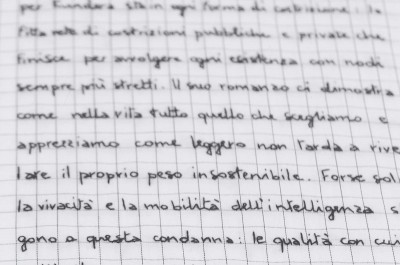 per Kundera sta in ogni forma di costrizione: la
fitta rete di costrizioni pubbliche e private che
finisce per avvolgere ogni esistenza con nodi
sempre più stretti. Il suo romanzo ci dimostra
come nella vita tutto quello che scegliamo e
apprezziamo come leggero non tarda a rive
lare il proprio peso insostenibile. Forse sol
la vivacità e la mobilità dell'intelligenza s
gono a questa condanna: le qualità con cui